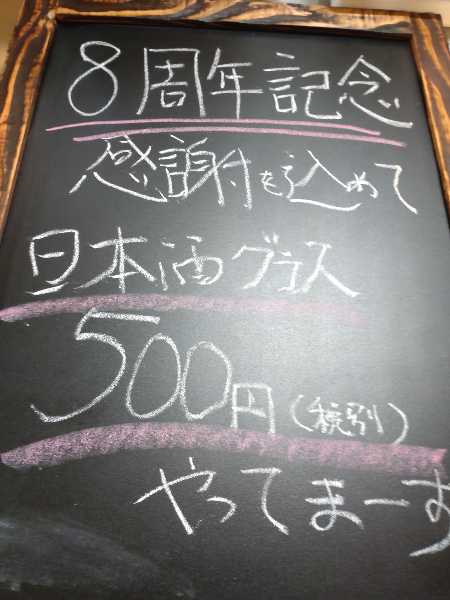 8周年記念
感謝を込めて
日本酒グラス
500円(税別)
やってまーす